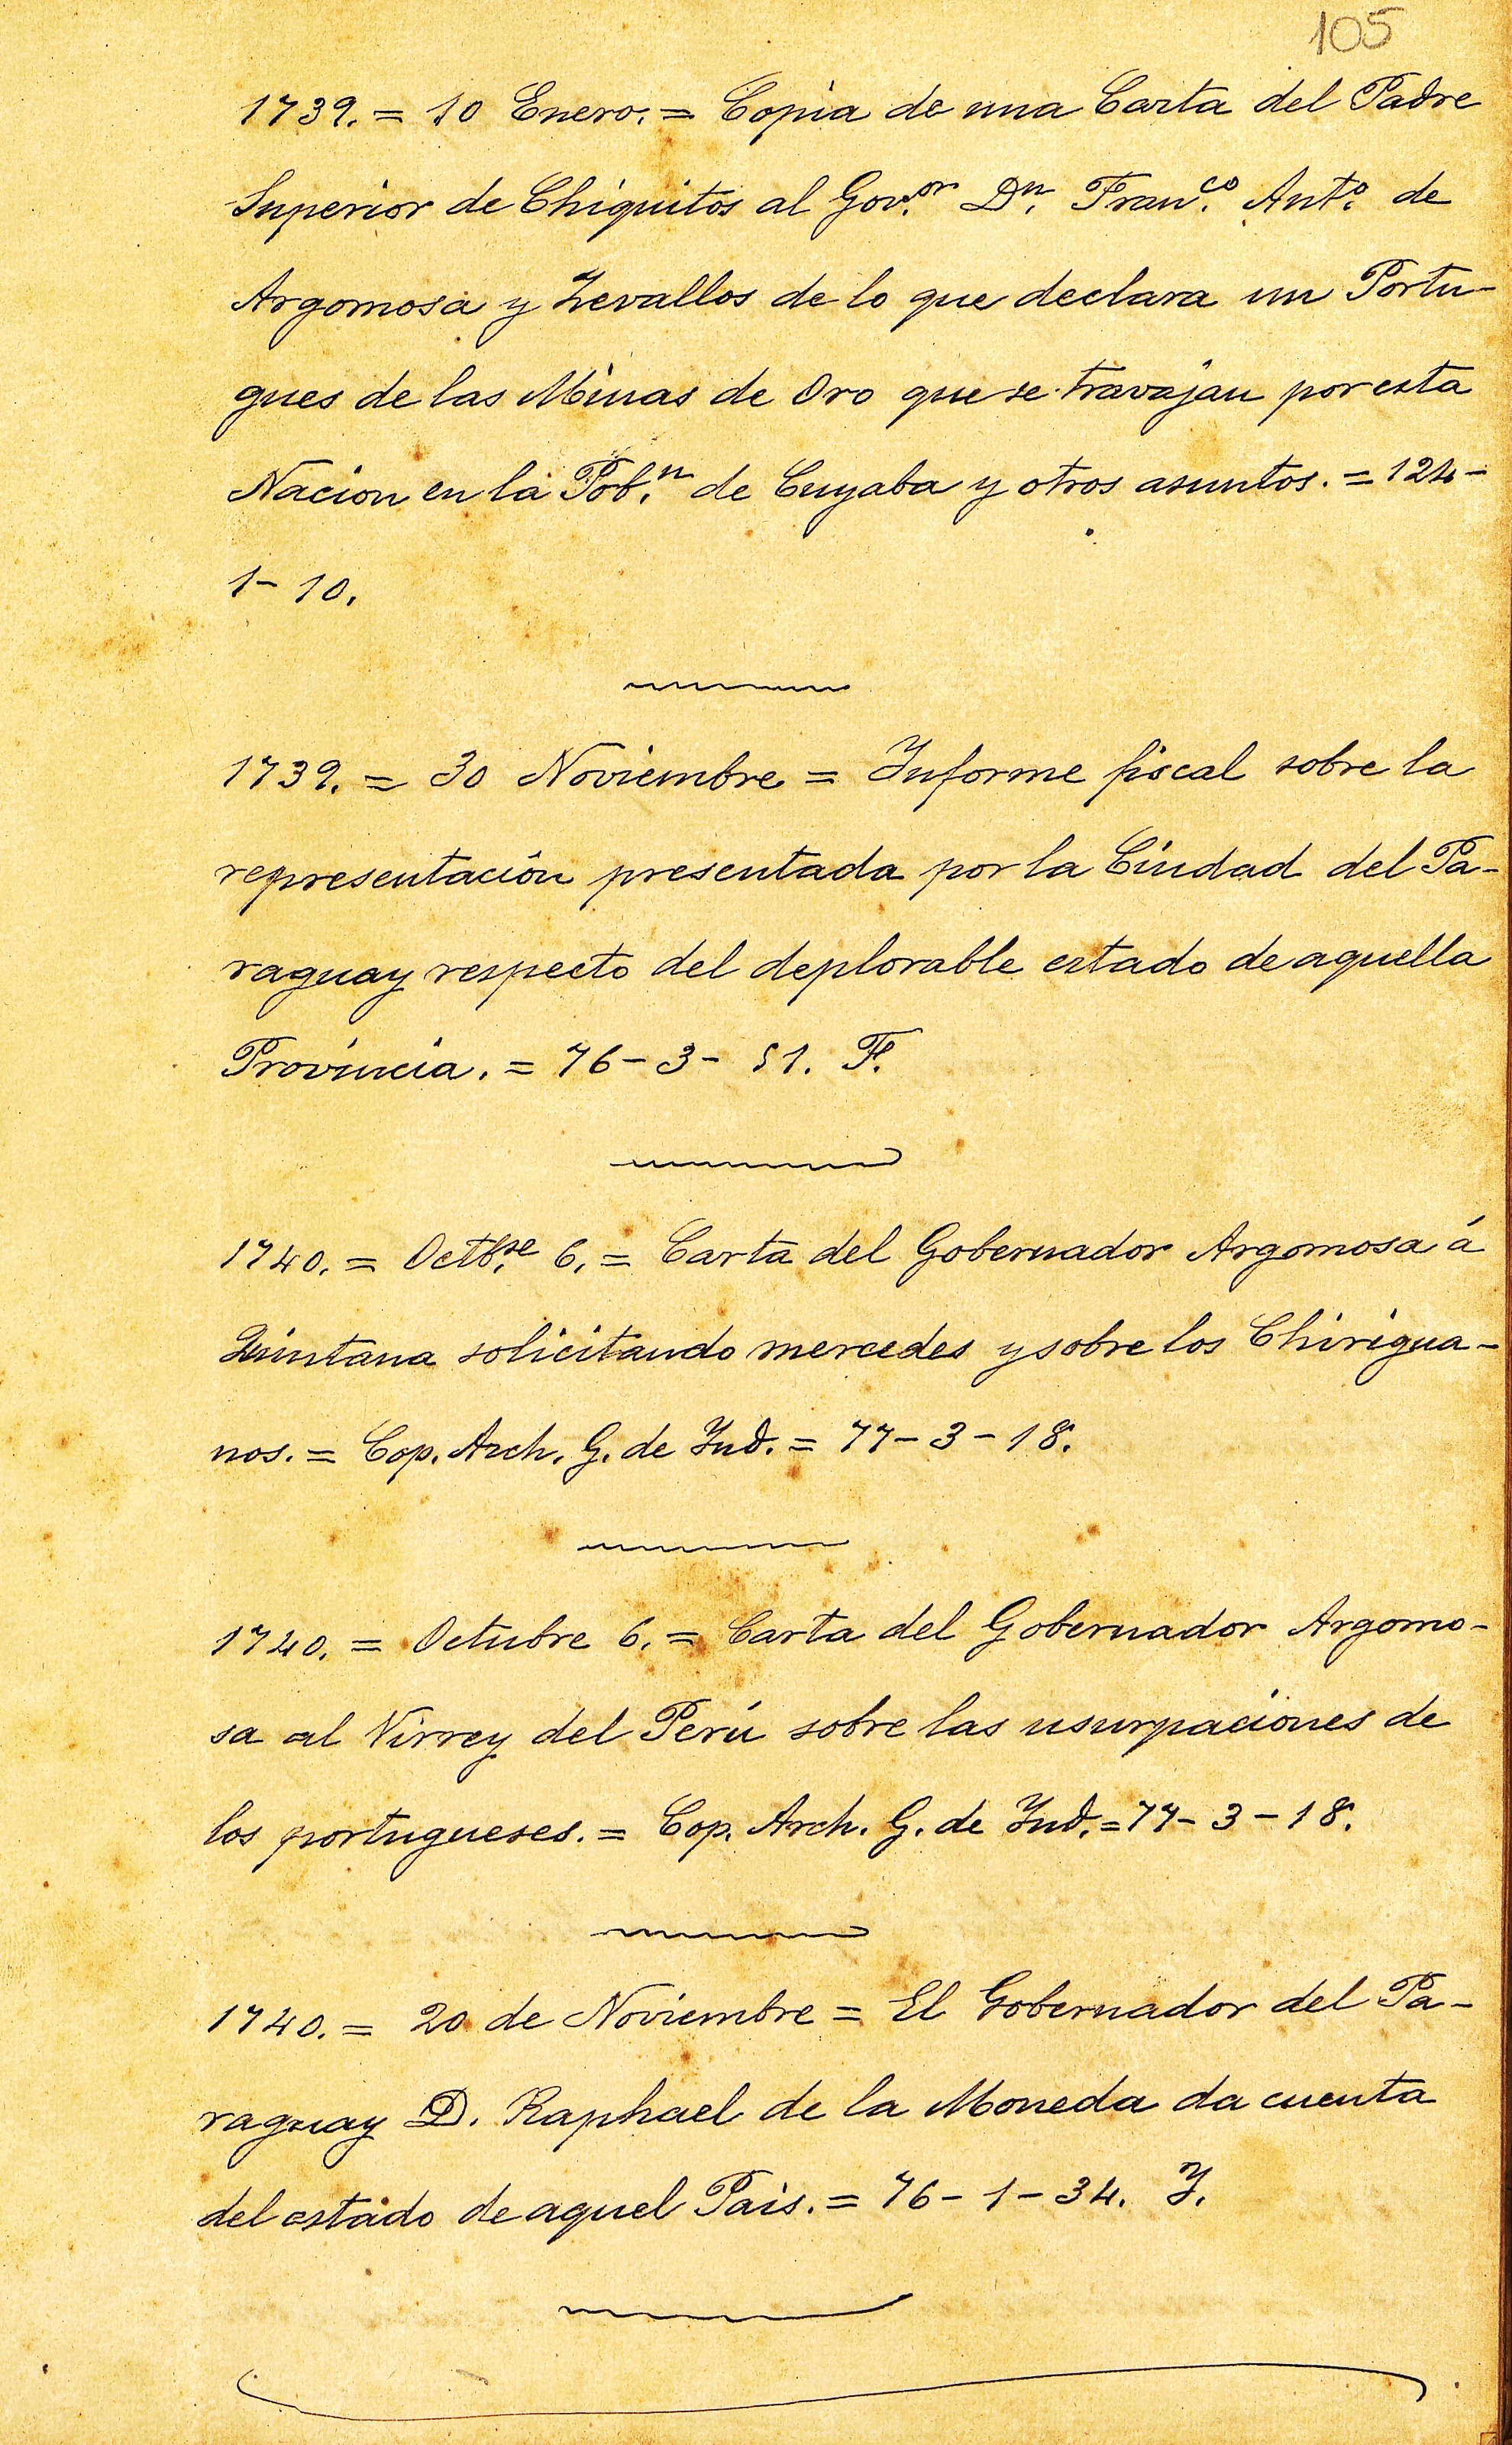 105
1739. = 10 Enero. = Copia de una Carta del Padre
Superior de Chiquitos al Gov.or Dn. Fran.co Ant.o de
Argomosa y Zevallos de lo que declara un Portu-
gues de las Minas de Oro que se travajan por esta
Nacion en la Pob.n de Cuyaba y otros asuntos. = 124-
1- 10.
1739. = 30 Noviembre = Informe fiscal sobre la
representación presentada por la Ciudad del Pa-
raguay respecto del deplorable estado de aquella
Provincia. = 76-3-51. F.
1740. = Octb.re 6. = Carta del Gobernador Argomosa á
Quintana solicitando mercedes y sobre los Chirigua-
nos. = Cop. Arch. G. de Ind. = 77-3-18.
1740. = Octubre 6. = Carta del Gobernador Argomo-
sa al Virrey del Perú sobre las usurpaciones de
los portugueses. = Cop. Arch. G. de Ind. = 77-3-18.
1740. = 20 de Noviembre = El Gobernador del Pa-
raguay D. Raphael de la Moneda da cuenta
del estado de aquel Pais. = 76-1-34. I.